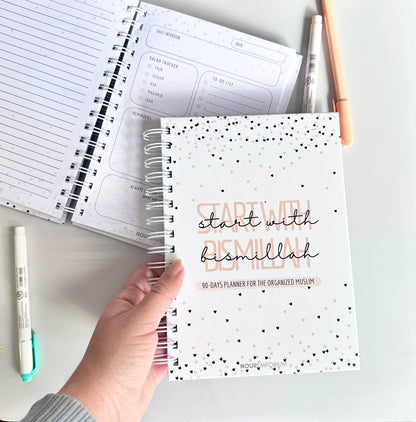 DAILY INTENTION:
DATE:
SALAH TRACKER
FAJR
DHUHR
ASR
MAGHRIB
ISHA
TO-DO LIST
REMINDERS
START WITH
start with
BISMILLAH
bismillah
90-DAYS PLANNER FOR THE ORGANIZED MUSLIM
NOUR EMPORIUM